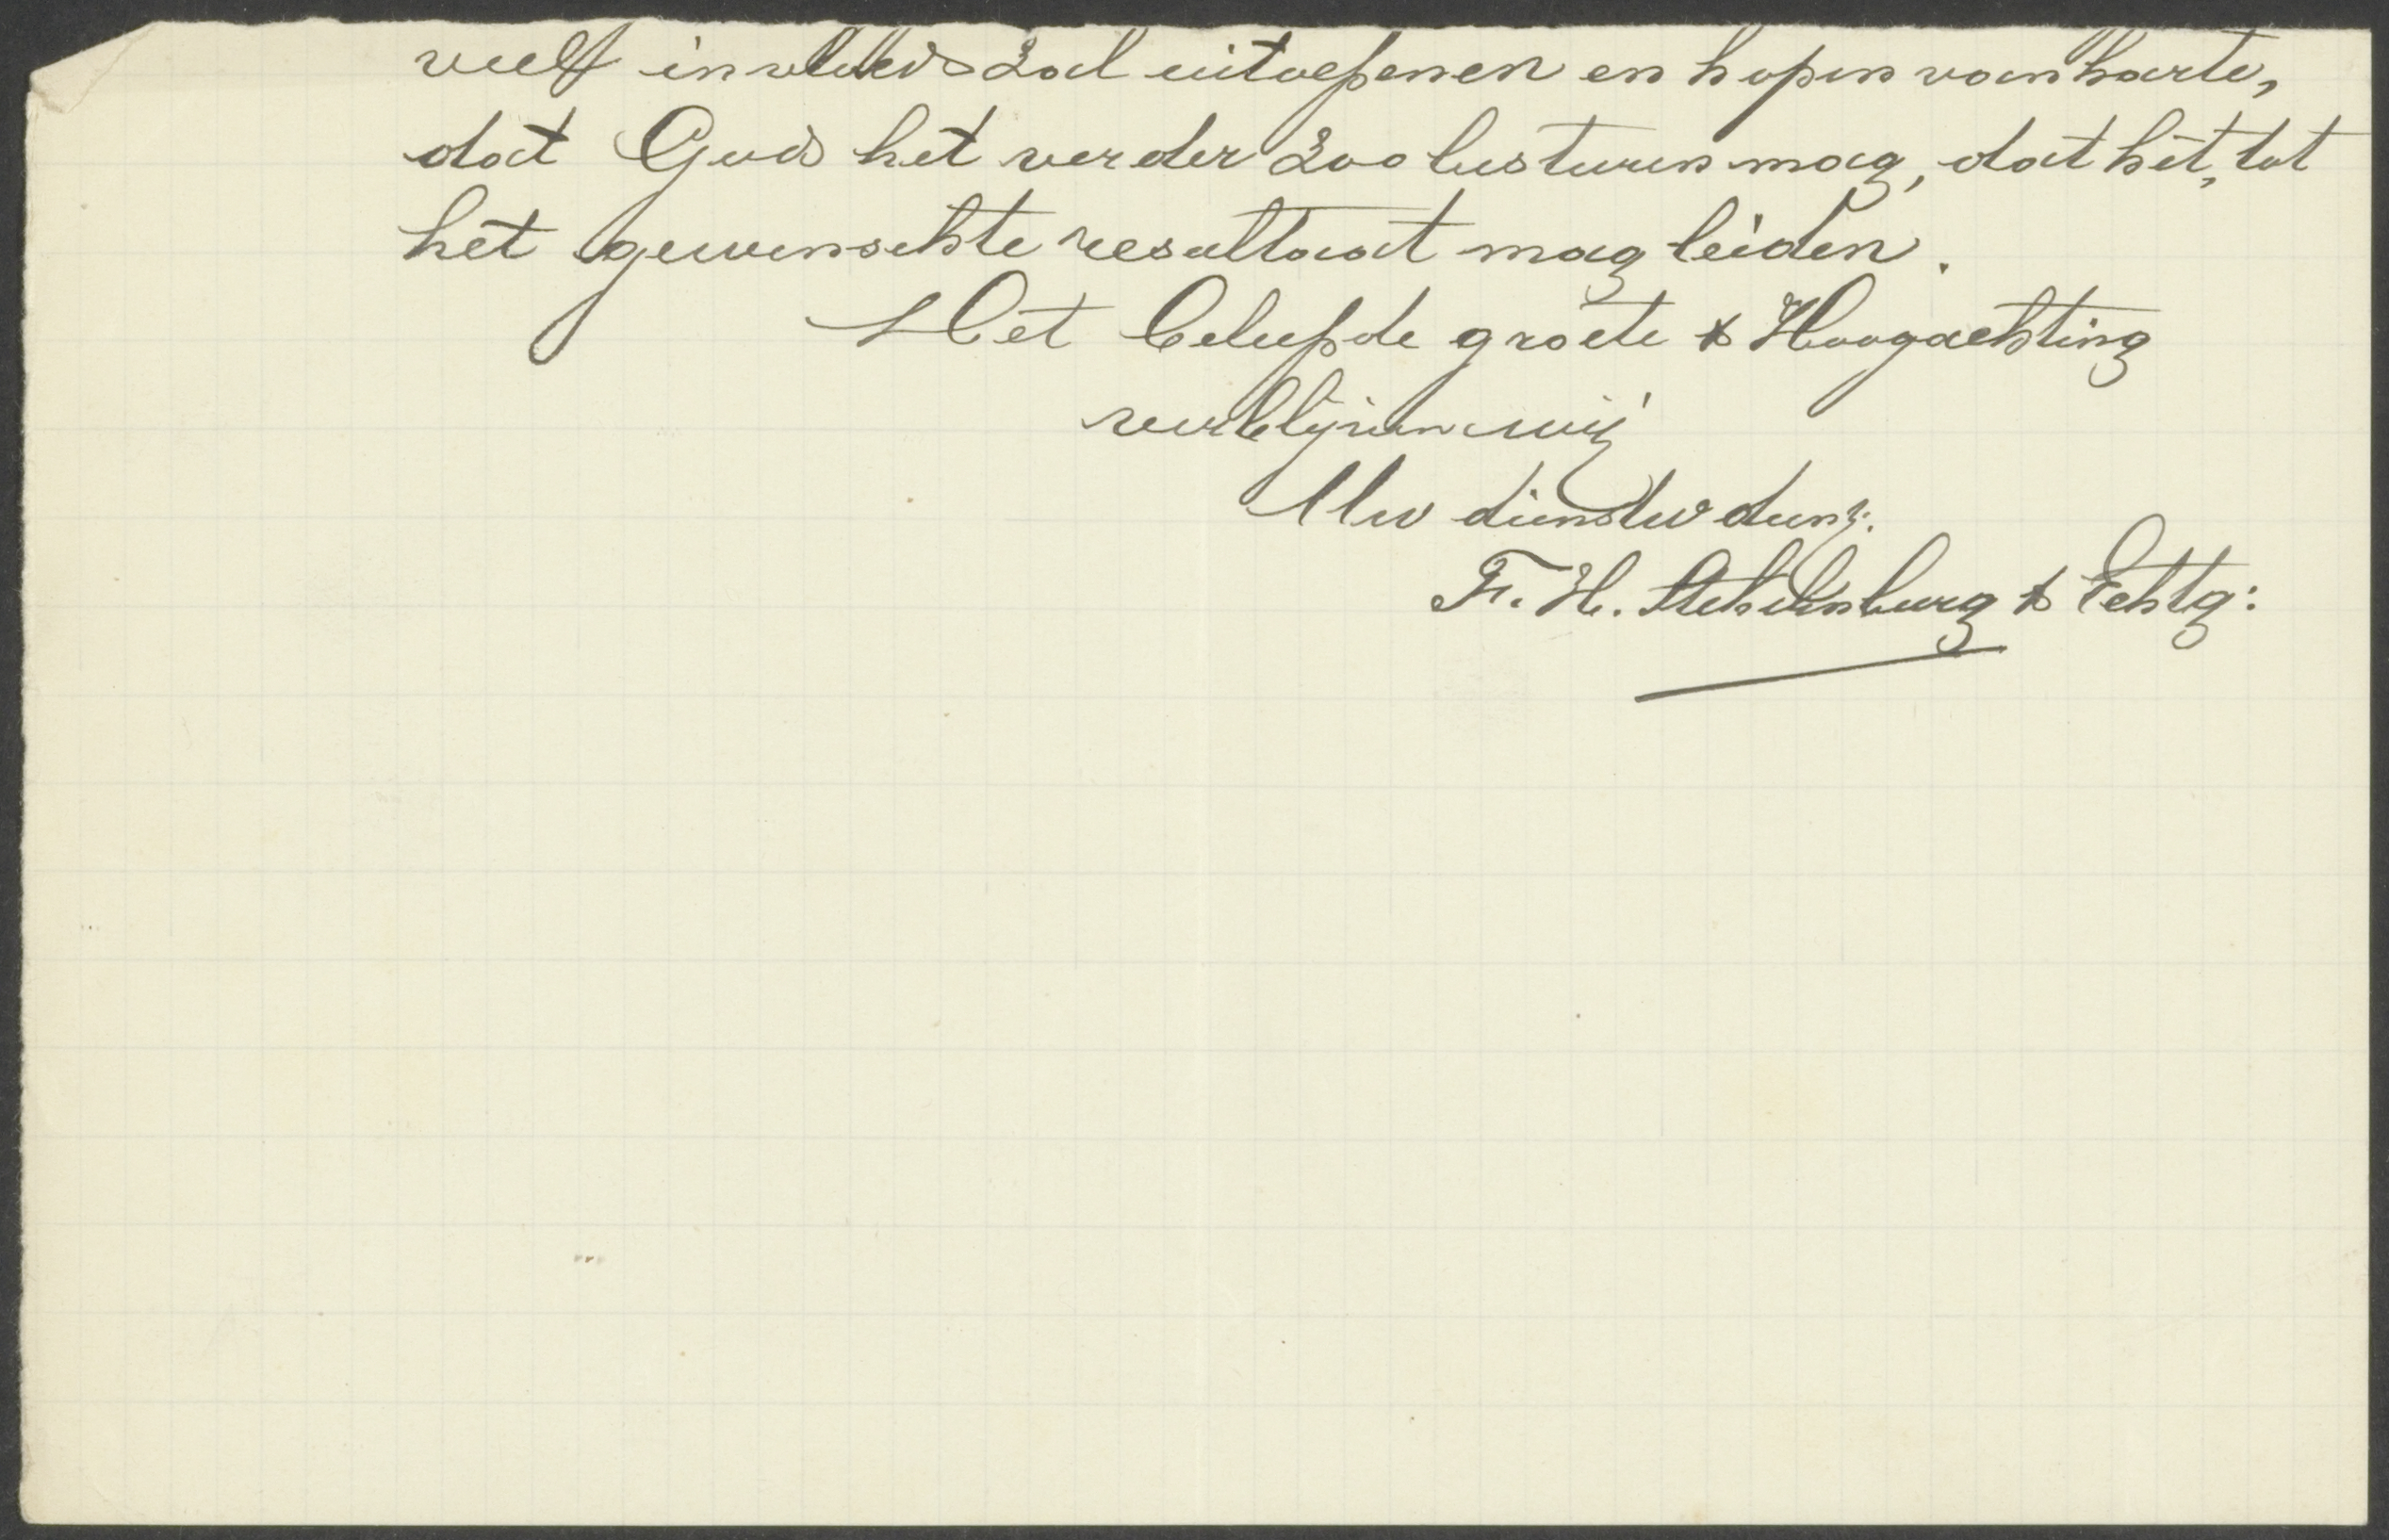 veel invloed zal uitoefenen en hopen van harte,
dat God het verder zoo besturen mag, dat het, tot
het gewenschte resultaat mag leiden.
Met beleefde groete & Hoogachting
verblijven wij
Uw dienstw dienz:
F. H. & Echtg: